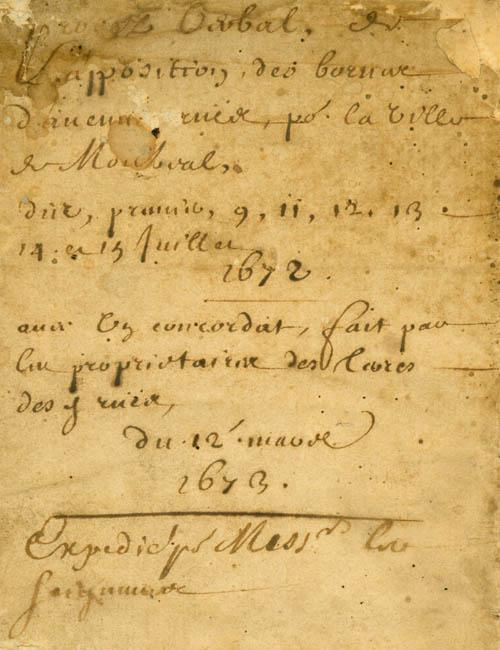 Procez Verbal, de
L'apposition, des bornes
d'aucunes rües, po.r la Ville
de Montreal,
du premier, 9, 11, 12. 13.
14. et 15 Juillet
1672.
avec Un concordat, fait par
les proprietaires des terres
des d. rües,
du 12.e mars
1673.
Expedié po.r Mess.rs les
Seigneurs